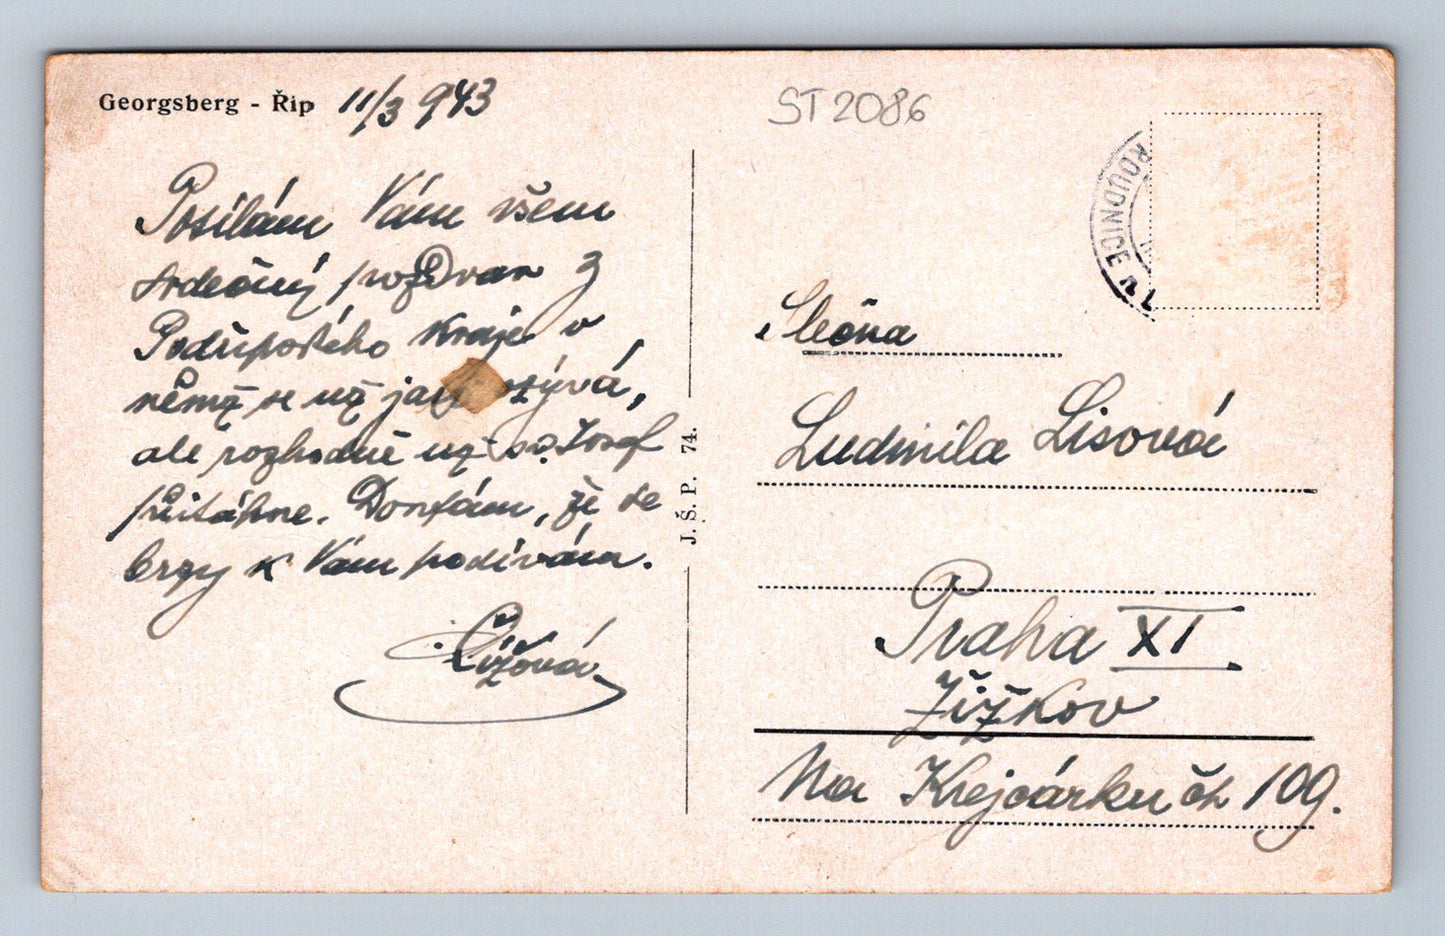 Georgsberg - Řip 11/3 943
Posílám Vám všem
srdečný pozdrav z
Podřipského kraje v
němž se už jaro ozývá,
ale rozhodně už sv. Josef
přitáhne. Doufám, že se
brzy k Vám podívám.
Čížová
J. Š. P. 74.
ST 2086
ROUDNICE
Slečna
Ludmila Lisová
Praha XI
Žižkov
Na Krejcárku čh 109.